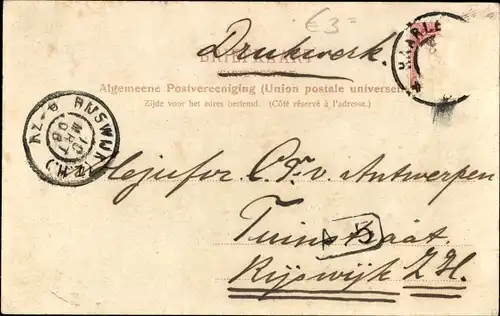 € 3=
Drukwerk.
BRIEFKAART
HAARLE
Algemeene Postvereeniging (Union postale universelle)
Zijde voor het adres bestemd. (Côté réservé à l'adresse.)
RIJSWIJK (Z.H.)
10 MRT 08
Mejufvr. C. Fr. v. Antwerpen
Tuinstraat.
5
Rijswijk Z.H.